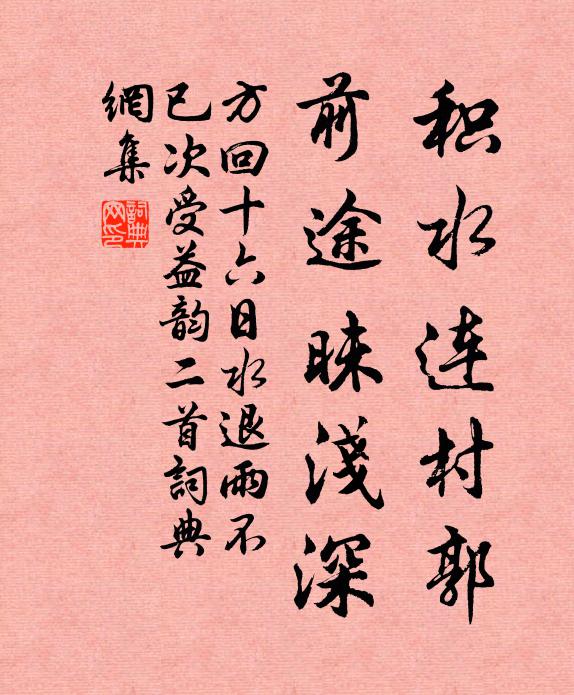 积水连村郭
前途昧淺深
方回十六日水退雨不
已次受益韵二首詞典
網集
詞典
网印